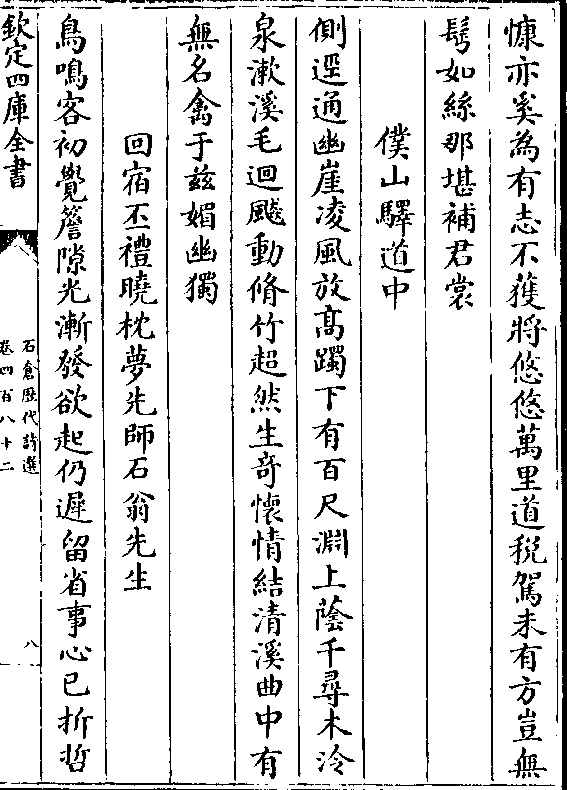 慷亦奚為有志不獲將悠悠萬里道稅駕未有方豈無
髩如絲那堪補君裳
僕山驛道中
側逕通幽崖凌風放高躅下有百尺淵上蔭千尋木泠
泉漱溪毛迴飈動脩竹超然生奇懷情結清溪曲中有
無名禽于兹媚幽獨
回宿丕禮曉枕夢先師石翁先生
鳥鳴客初覺簷隙光漸發欲起仍遲留省事心已折哲
欽定四庫全書
石倉歴代詩選
卷四百八十二
八